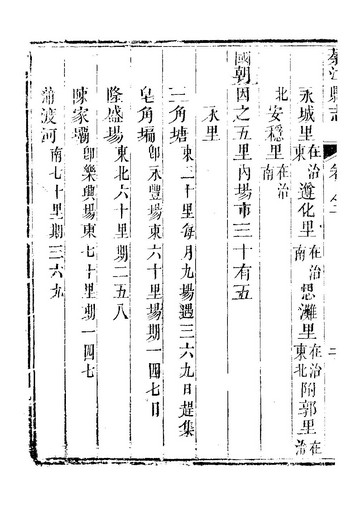 綦江縣志 卷之二 二
永城里在治東遵化里在治南思灘里在治東北附郭里在治
北安穩里在治南
國朝因之五里內場市三十有五
永里
三角塘東三十里每月九場遇三六九日趕集
皂角壪卽永豐場東六十里場期一四七日
隆盛場東北六十里期二五八
陳家壩卽樂興場東七十里朝一四七
蒲渡河南七十里期三六九